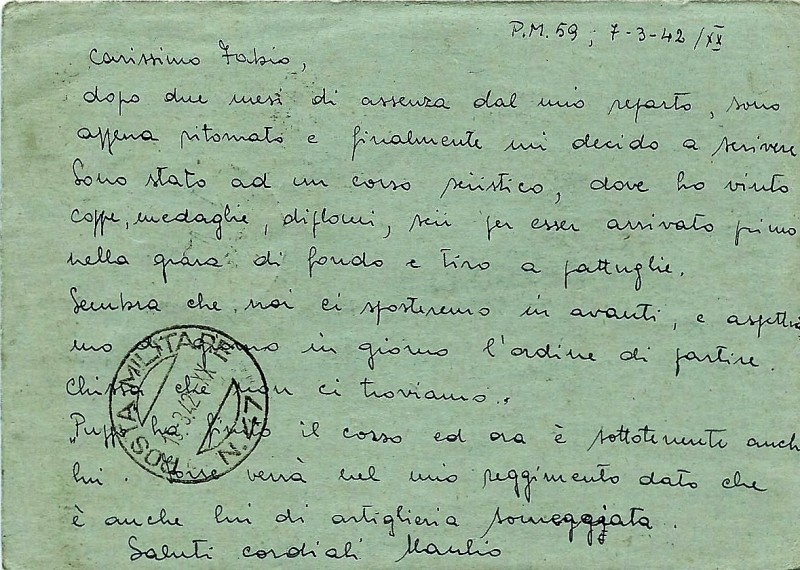 P.M. 59; 7-3-42/XX
Carissimo Fabio,
dopo due mesi di assenza dal mio reparto, sono
appena ritornato e finalmente mi decido a scrivere
Sono stato ad un corso sciistico, dove ho vinto
coppe, medaglie, diplomi, scii per esser arrivato primo
nella gara di fondo e tiro a pattuglie.
Sembra che noi ci sposteremo in avanti, e aspettia
mo di giorno in giorno l'ordine di partire.
Chissà che non ci troviamo.
ha finito il corso ed ora è sottotenente anche
lui. Forse verrà nel mio reggimento dato che
è anche lui di artiglieria someggiata.
Saluti cordiali Manlio
POSTA MILITARE N.